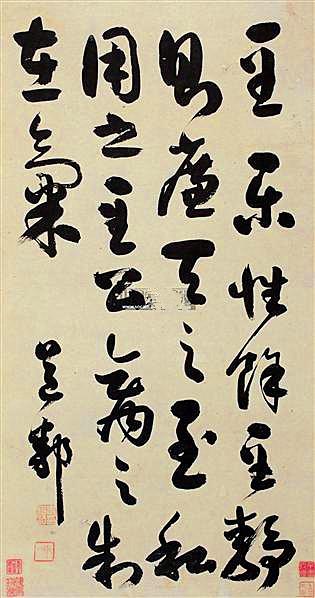 至樂性餘至靜
則廉天之至私
用之至公禽之制
在氣